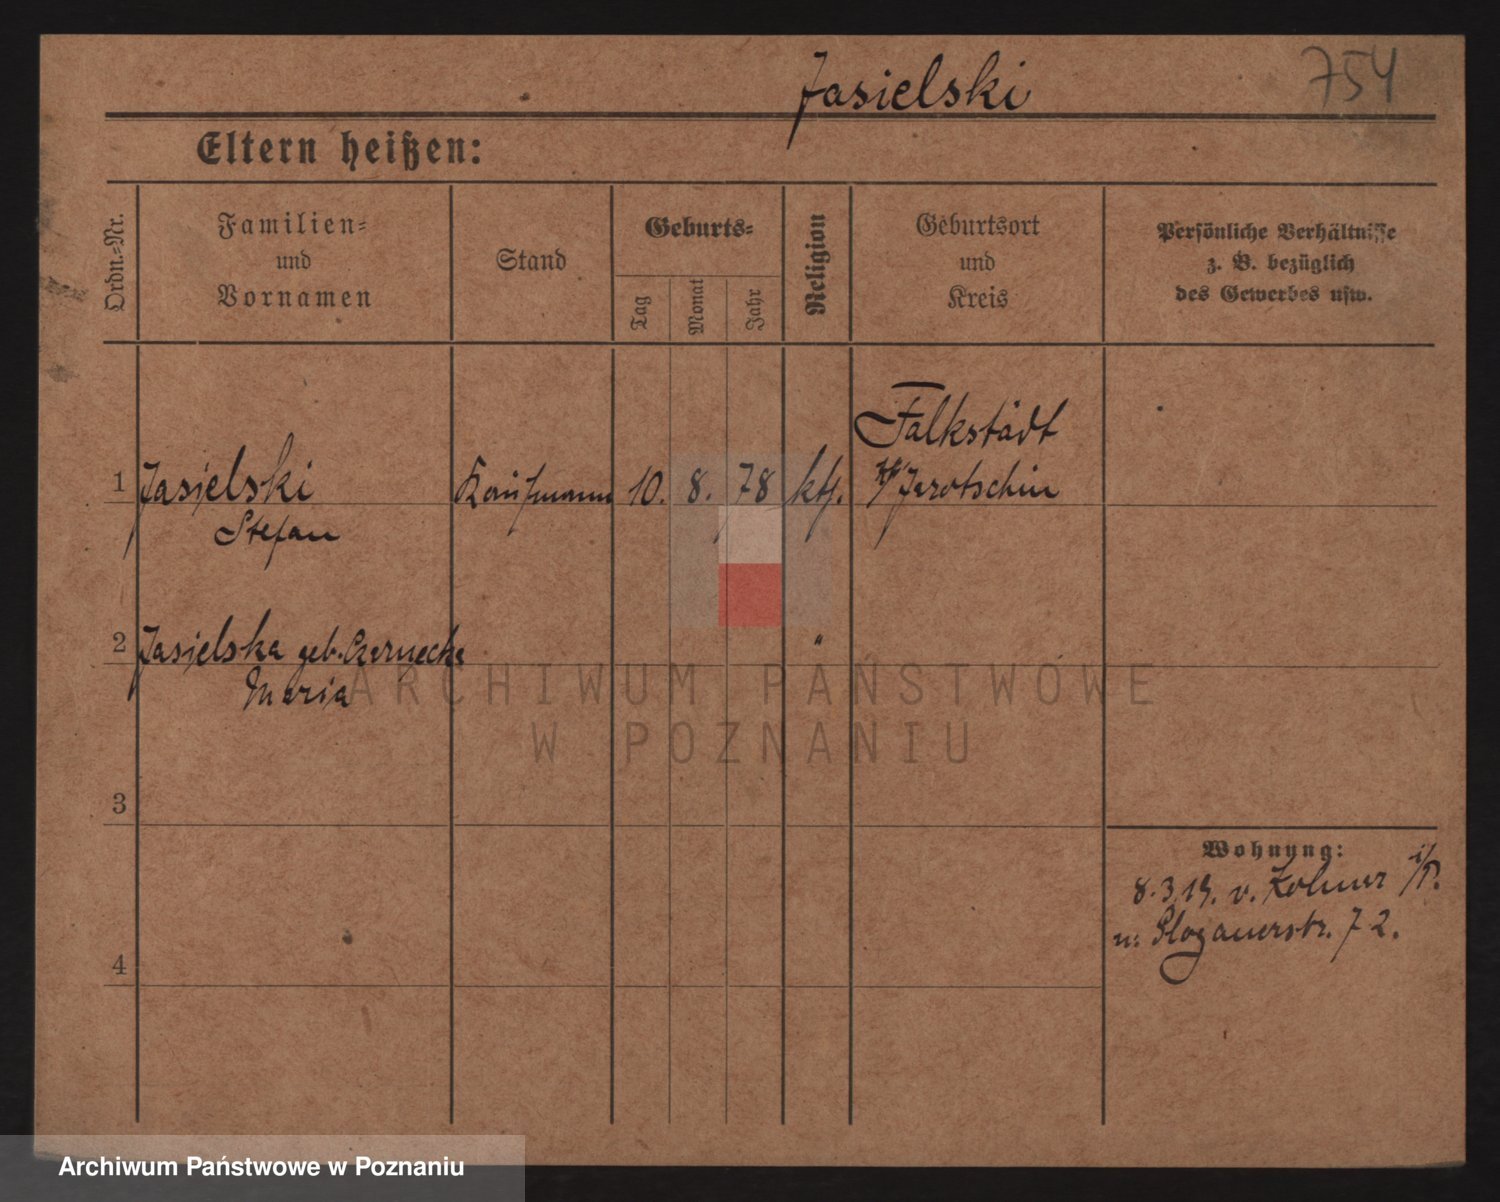 Jasielski 754
Eltern heißen:
Ordn.=Nr.
Familien=
und
Vornamen
Stand
Geburts=
Tag
Monat
Jahr
Religion
Geburtsort
und
Kreis
Persönliche Verhältnisse
z. B. bezüglich
des Gewerbes usw.
Falkstädt
1 Jasielski Kaufmann 10. 8. 78 kth. Jarotschin
Stefan
2 Jasielska geb. "
Maria
ARCHIWUM PAŃSTWOWE
W POZNANIU
3
Wohnung:
8.3.19. v. Kolmar i/P.
n. Glogauerstr. 72.
4
Archiwum Państwowe w Poznaniu